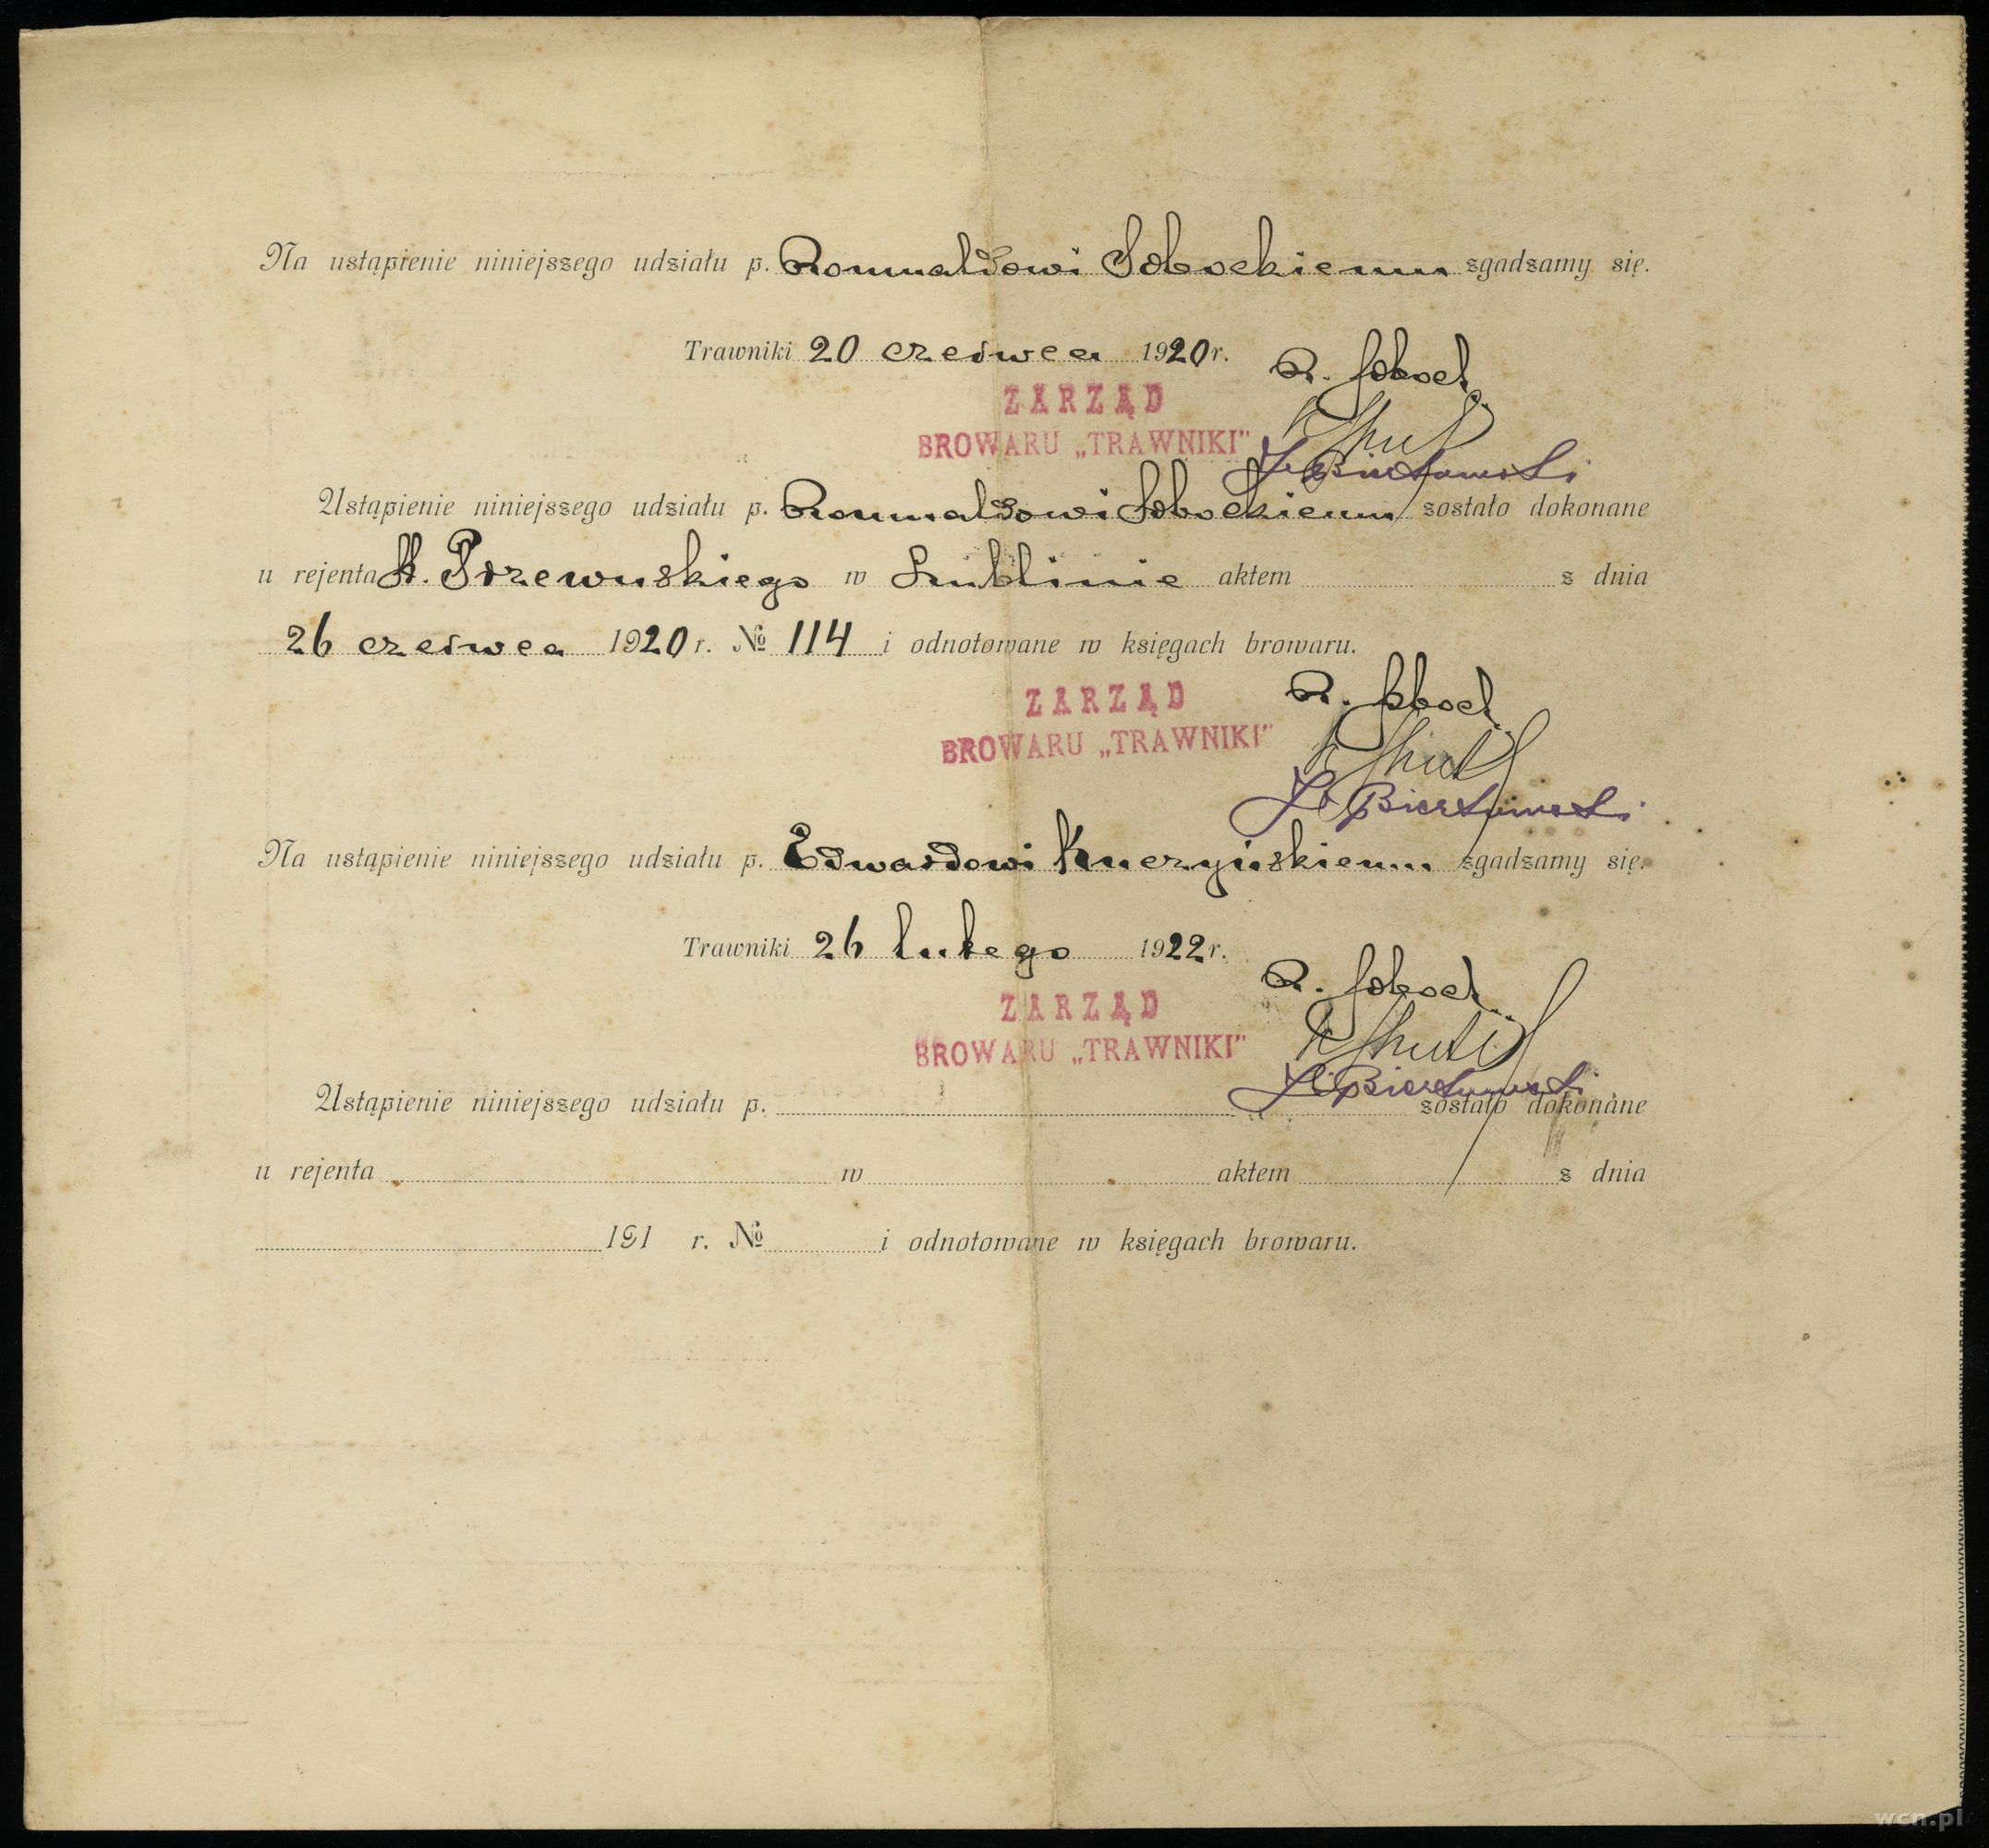 Na ustąpienie niniejszego udziału p. Romualdowi Sobockiemu zgadzamy się.
Trawniki 20 czerwca 1920 r.
R. Sobocki
ZARZĄD
BROWARU „TRAWNIKI"
Ustąpienie niniejszego udziału p. Romualdowi Sobockiemu zostało dokonane
u rejenta St. Przewuskiego w Lublinie aktem z dnia
26 czerwca 1920 r. № 114 i odnotowane w księgach browaru.
R. Sobocki
ZARZĄD
BROWARU „TRAWNIKI"
Na ustąpienie niniejszego udziału p. Edwardowi Kuczyńskiemu zgadzamy się.
Trawniki 26 lutego 1922 r.
R. Sobocki
ZARZĄD
BROWARU „TRAWNIKI"
Ustąpienie niniejszego udziału p. zostało dokonane
u rejenta w aktem z dnia
191 r. № i odnotowane w księgach browaru.
wcn.pl